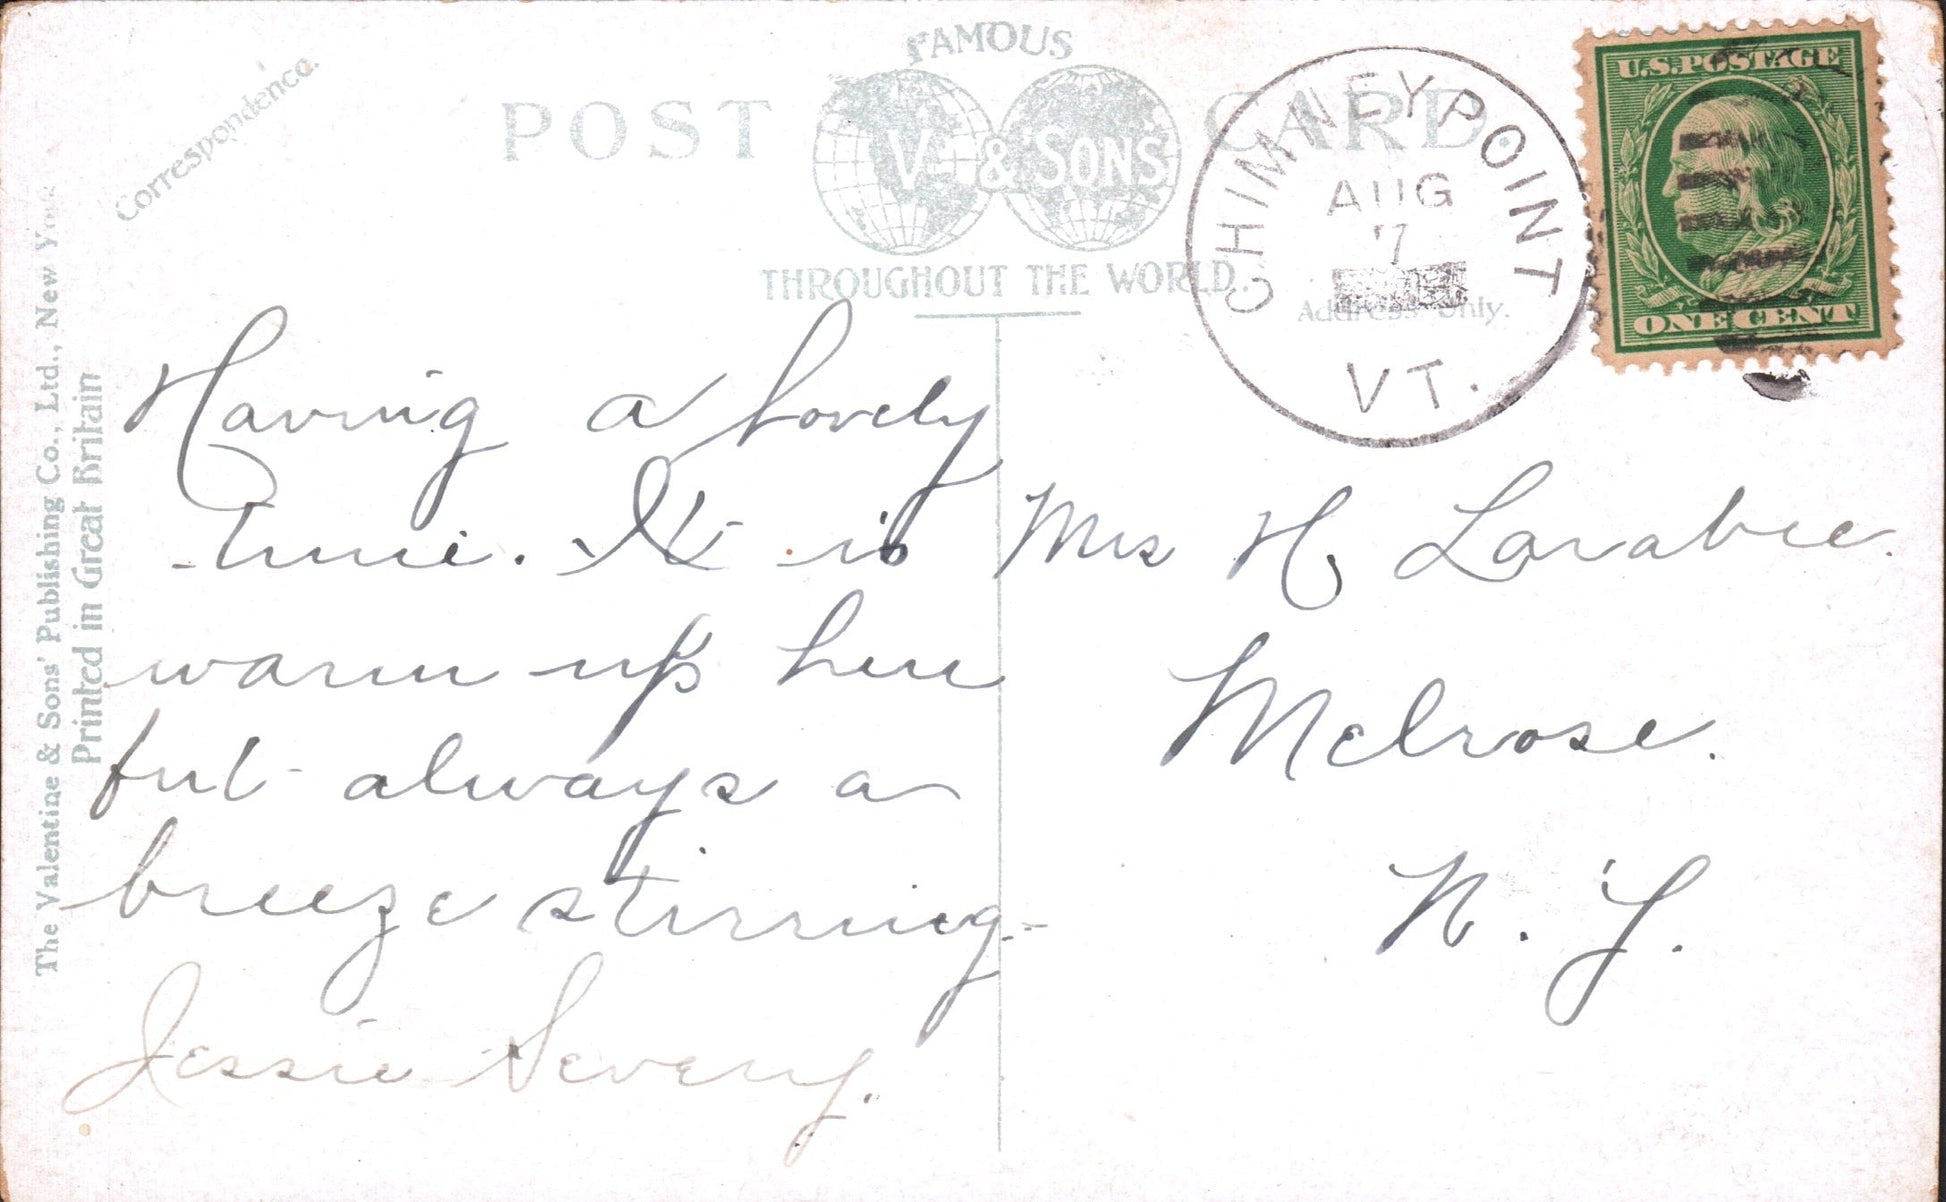 Correspondence.
FAMOUS
POST CARD.
V. & SONS
THROUGHOUT THE WORLD.
Address Only.
CHIMNEY POINT
AUG
7
VT.
U.S. POSTAGE
ONE CENT
The Valentine & Sons' Publishing Co., Ltd., New York
Printed in Great Britain
Having a lovely
time. It is
warm up here
but always a
breeze stirring
Jessie Severy.
Mrs H Larabee.
Melrose.
N. Y.